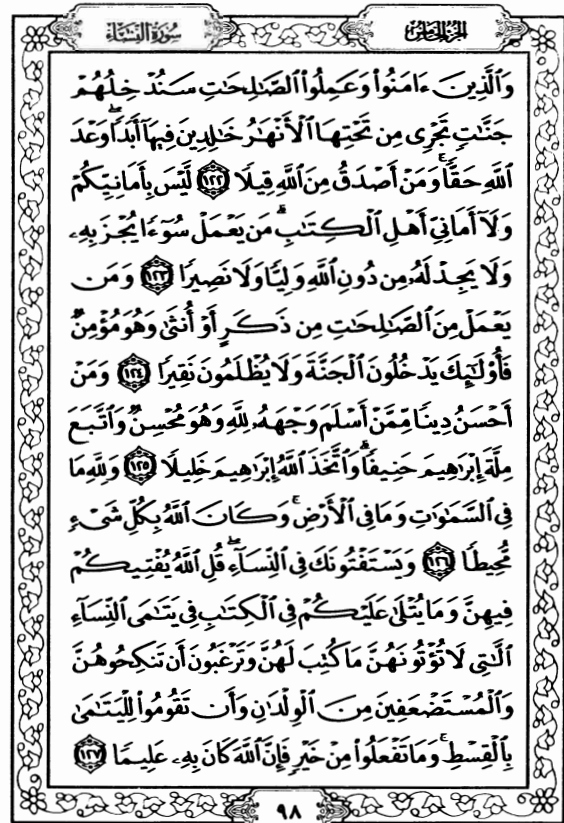 سُورَةُ النِّسَاءِ
الجُزْءُ الخَامِسُ
وَٱلَّذِينَ ءَامَنُوا۟ وَعَمِلُوا۟ ٱلصَّٰلِحَٰتِ سَنُدْخِلُهُمْ
جَنَّٰتٍ تَجْرِى مِن تَحْتِهَا ٱلْأَنْهَٰرُ خَٰلِدِينَ فِيهَآ أَبَدًاۖ وَعْدَ
ٱللَّهِ حَقًّاۚ وَمَنْ أَصْدَقُ مِنَ ٱللَّهِ قِيلًا ١٢٢ لَّيْسَ بِأَمَانِيِّكُمْ
وَلَآ أَمَانِىِّ أَهْلِ ٱلْكِتَٰبِۗ مَن يَعْمَلْ سُوٓءًا يُجْزَ بِهِۦ
وَلَا يَجِدْ لَهُۥ مِن دُونِ ٱللَّهِ وَلِيًّا وَلَا نَصِيرًا ١٢٣ وَمَن
يَعْمَلْ مِنَ ٱلصَّٰلِحَٰتِ مِن ذَكَرٍ أَوْ أُنثَىٰ وَهُوَ مُؤْمِنٌ
فَأُو۟لَٰٓئِكَ يَدْخُلُونَ ٱلْجَنَّةَ وَلَا يُظْلَمُونَ نَقِيرًا ١٢٤ وَمَنْ
أَحْسَنُ دِينًا مِّمَّنْ أَسْلَمَ وَجْهَهُۥ لِلَّهِ وَهُوَ مُحْسِنٌ وَٱتَّبَعَ
مِلَّةَ إِبْرَٰهِيمَ حَنِيفًاۗ وَٱتَّخَذَ ٱللَّهُ إِبْرَٰهِيمَ خَلِيلًا ١٢٥ وَلِلَّهِ مَا
فِى ٱلسَّمَٰوَٰتِ وَمَا فِى ٱلْأَرْضِۚ وَكَانَ ٱللَّهُ بِكُلِّ شَىْءٍ
مُّحِيطًا ١٢٦ وَيَسْتَفْتُونَكَ فِى ٱلنِّسَآءِۖ قُلِ ٱللَّهُ يُفْتِيكُمْ
فِيهِنَّ وَمَا يُتْلَىٰ عَلَيْكُمْ فِى ٱلْكِتَٰبِ فِى يَتَٰمَى ٱلنِّسَآءِ
ٱلَّٰتِى لَا تُؤْتُونَهُنَّ مَا كُتِبَ لَهُنَّ وَتَرْغَبُونَ أَن تَنكِحُوهُنَّ
وَٱلْمُسْتَضْعَفِينَ مِنَ ٱلْوِلْدَٰنِ وَأَن تَقُومُوا۟ لِلْيَتَٰمَىٰ
بِٱلْقِسْطِۚ وَمَا تَفْعَلُوا۟ مِنْ خَيْرٍ فَإِنَّ ٱللَّهَ كَانَ بِهِۦ عَلِيمًا ١٢٧
٩٨